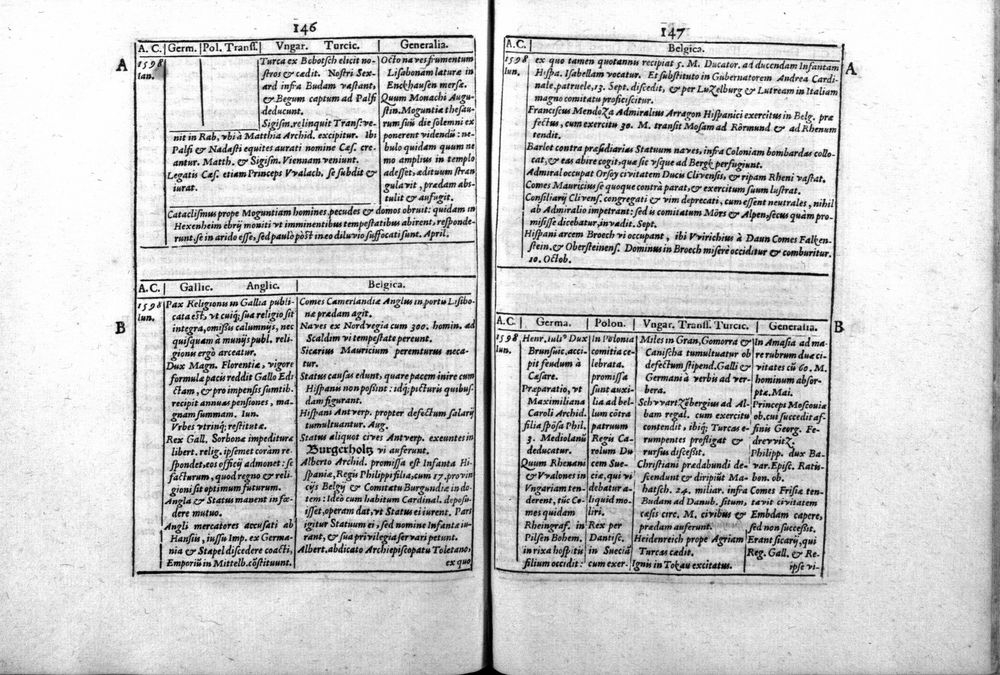 146
A. C. Germ. Pol. Transs. Vngar. Turcic. Generalia.
A
1598
Ian.
Turca ex Bobotsch elicit no-
stros & cædit. Nostri Sex-
ard infra Budam vastant,
& Begum captum ad Palfi
deducunt.
Sigism. relinquit Trans: ve-
nit in Rab. vbi à Matthia Archid. excipitur. Ibi
Palfi & Nadasti equites aurati nomine Cæs. cre-
antur. Matth. & Sigism. Viennam veniunt.
Legatis Cæs. etiam Princeps Vvalach. se subdit &
iurat.
Octo naves frumentum
Lisabonam laturæ in
Enckhausen mersæ.
Quum Monachi Augu-
stin. Moguntiæ thesau-
rum suũ die solemni ex
ponerent videndũ: ne-
bulo quidam quum ne
mo amplius in templo
adesset, ædituum stran
gulavit, prædam abs-
tulit & aufugit.
Cataclismus prope Moguntiam homines, pecudes & domos obruit: quidam in
Hexenheim ebrij moniti vt imminentibus tempestatibus abirent, responde-
runt, se in arido esse, sed paulò pòst in eo diluvio suffocati sunt. April.
A. C. Gallic. Anglic. Belgica.
B
1598
Iun.
Pax Religionis in Gallia publi-
cata est, vt cuiq; sua religio sit
integra, omißis calumnijs, nec
quisquam à munijs publ. reli-
gionis ergò arceatur.
Dux Magn. Florentiæ, vigore
formulæ pacis reddit Gallo Edi
ctam, & pro impensis sumtib.
recipit annuas pensiones, ma-
gnam summam. Iun.
Vrbes vtrinq; restitutæ.
Rex Gall. Sorbonæ impedituræ
libert. relig. ipsemet coram re-
spondet, eos officij admonet: se
facturum, quod regno & reli-
gioni sit optimum futurum.
Anglia & Status manent in fœ-
dere mutuo.
Angli mercatores accusati ab
Hansiis, iussu Imp. ex Germa-
nia & Stapel discedere coacti,
Emporiũ in Mittelb. cõstituunt.
Comes Camerlandiæ Anglus in portu Lisibo-
næ prædam agit.
Naves ex Nordvegia cum 300. homin. ad
Scaldim vi tempestate pereunt.
Sicarius Mauricium peremturus neca-
tur.
Status causas edunt, quare pacem inire cum
Hispanis non poßint: idq; picturis quibus-
dam figurant.
Hispani Antverp. propter defectum salarij
tumultuantur. Aug.
Status aliquot cives Antverp. exeuntes in
Burgerholtz vi auferunt.
Alberto Archid. promissa est Infanta Hi-
spaniæ, Regis Philippi filia, cum 17. provin
cijs Belgij & Comitatu Burgundiæ in do-
tem: Ideo cum habitum Cardinal. deposu-
isset, operam dat, vt Status ei iurent. Pars
igitur Statuum ei, sed nomine Infantæ iu-
rant, & sua privilegia servari petunt.
Albert. abdicato Archiepiscopatu Toletano,
ex quo
147
A. C. Belgica.
A
1598
Iun.
ex quo tamen quotannis recipiat 5. M. Ducator. ad ducendam Infantam
Hispa. Isabellam vocatur. Et substituto in Gubernatorem Andrea Cardi-
nale, patruele, 13. Sept. discedit, & per Luzelburg & Lutream in Italiam
magno comitatu proficiscitur.
Franciscus Mendoza Admiralius Arragon Hispanici exercitus in Belg. præ
fectus, cum exercitu 30. M. transit Mosam ad Rörmund & ad Rhenum
tendit.
Barlet contra præsidiarias Statuum naves, infra Coloniam bombardas collo-
cat, & eas abire cogit, quæ sic vsque ad Bergk perfugiunt.
Admiral occupat Orsoy civitatem Ducis Clivensis, & ripam Rheni vastat.
Comes Mauricius se quoque contrà parat, & exercitum suum lustrat.
Consiliarij Clivens. congregati & vim deprecati, cum essent neutrales, nihil
ab Admiralio impetrant: sed is comitatum Mörs & Alpen, secus quàm pro-
misisse dicebatur, invadit. Sept.
Hispani arcem Broech vi occupant, ibi Vvirichius à Daun Comes Falken-
stein. & Obersteinens. Dominus in Broech miserè occiditur & comburitur.
10. Octob.
A. C. Germa. Polon. Vngar. Transs. Turcic. Generalia.
B
1598
Iun.
Henr. Iuli⁹ Dux
Brunsuic. acci-
pit feudum à
Cæsare.
Præparatio, vt
Maximiliana
Caroli Archid.
filia spõsa Phil.
3. Mediolanũ
deducatur.
Quum Rhenani
& Vvalones in
Vngariam ten-
derent, tũc Co-
mes quidam
Rheingraf. in
Pilsen Bohem.
in rixa hospitis
filium occidit:
In Polonia
comitia ce-
lebrata.
promissa
sunt auxi-
lia ad bel-
lum cõtra
patruum
Regis Ca-
rolum Du
cem Sue-
ciæ, qui vi
debatur a-
liquid mo-
liri.
Rex per
Dantisc.
in Sueciã
cum exer-
Miles in Gran, Gomorra &
Canischa tumultuatur ob
defectum stipend. Galli &
Germani à verbis ad ver-
bera.
Schvvartzẽbergius ad Al-
bam regal. cum exercitu
contendit, ibiq; Turcas e-
rumpentes profligat &
rursus discessit.
Christiani prædabundi de-
scendunt & diripiũt Ma-
batsch. 24. miliar. infra
Budam ad Danub. situm,
cæsis circ. M. civibus &
prædam auferunt.
Heidenreich prope Agriam
Turcas cædit.
Ignis in Tokau excitatus.
In Amasia ad ma-
re rubrum duæ ci-
vitates cũ 60. M.
hominum absor-
ptæ. Mai.
Princeps Moscoviæ
ob. cui succedit af-
finis Georg. Fe-
drevvitz.
Philipp. dux Ba-
var. Episc. Ratis-
bon. ob.
Comes Frisiæ ten-
tavit civitatem
Embdam capere,
sed non successit.
Erant sicarij, qui
Reg. Gall. & Re-
ipse vi-